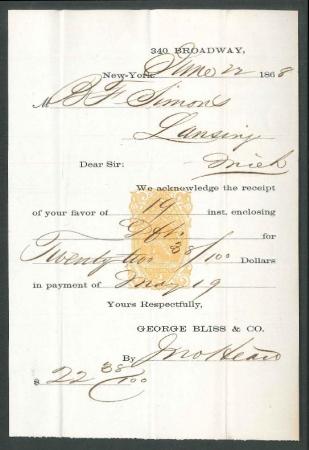 340 BROADWAY,
New-York June 22 1868
M B F Simons
Lansing
Dear Sir: Mich
We acknowledge the receipt
of your favor of 19 inst, enclosing
Dft for
Twenty two 38/100 Dollars
in payment of May 19
Yours Respectfully,
GEORGE BLISS & CO.
By Jno
$ 22 38/100